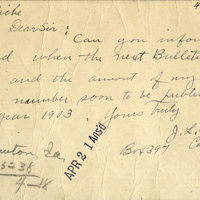 Dear Sir: Can you infor
d when the next Bulleti
and the amount of my
number soon to be publi
year 1903. Yours Truly
J. L.
Box 397
APR 21 Ans'd
5-38
4-18